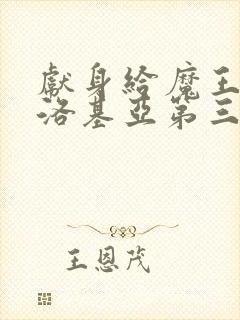 獻身給魔王
洛基亞第三
王恩茂